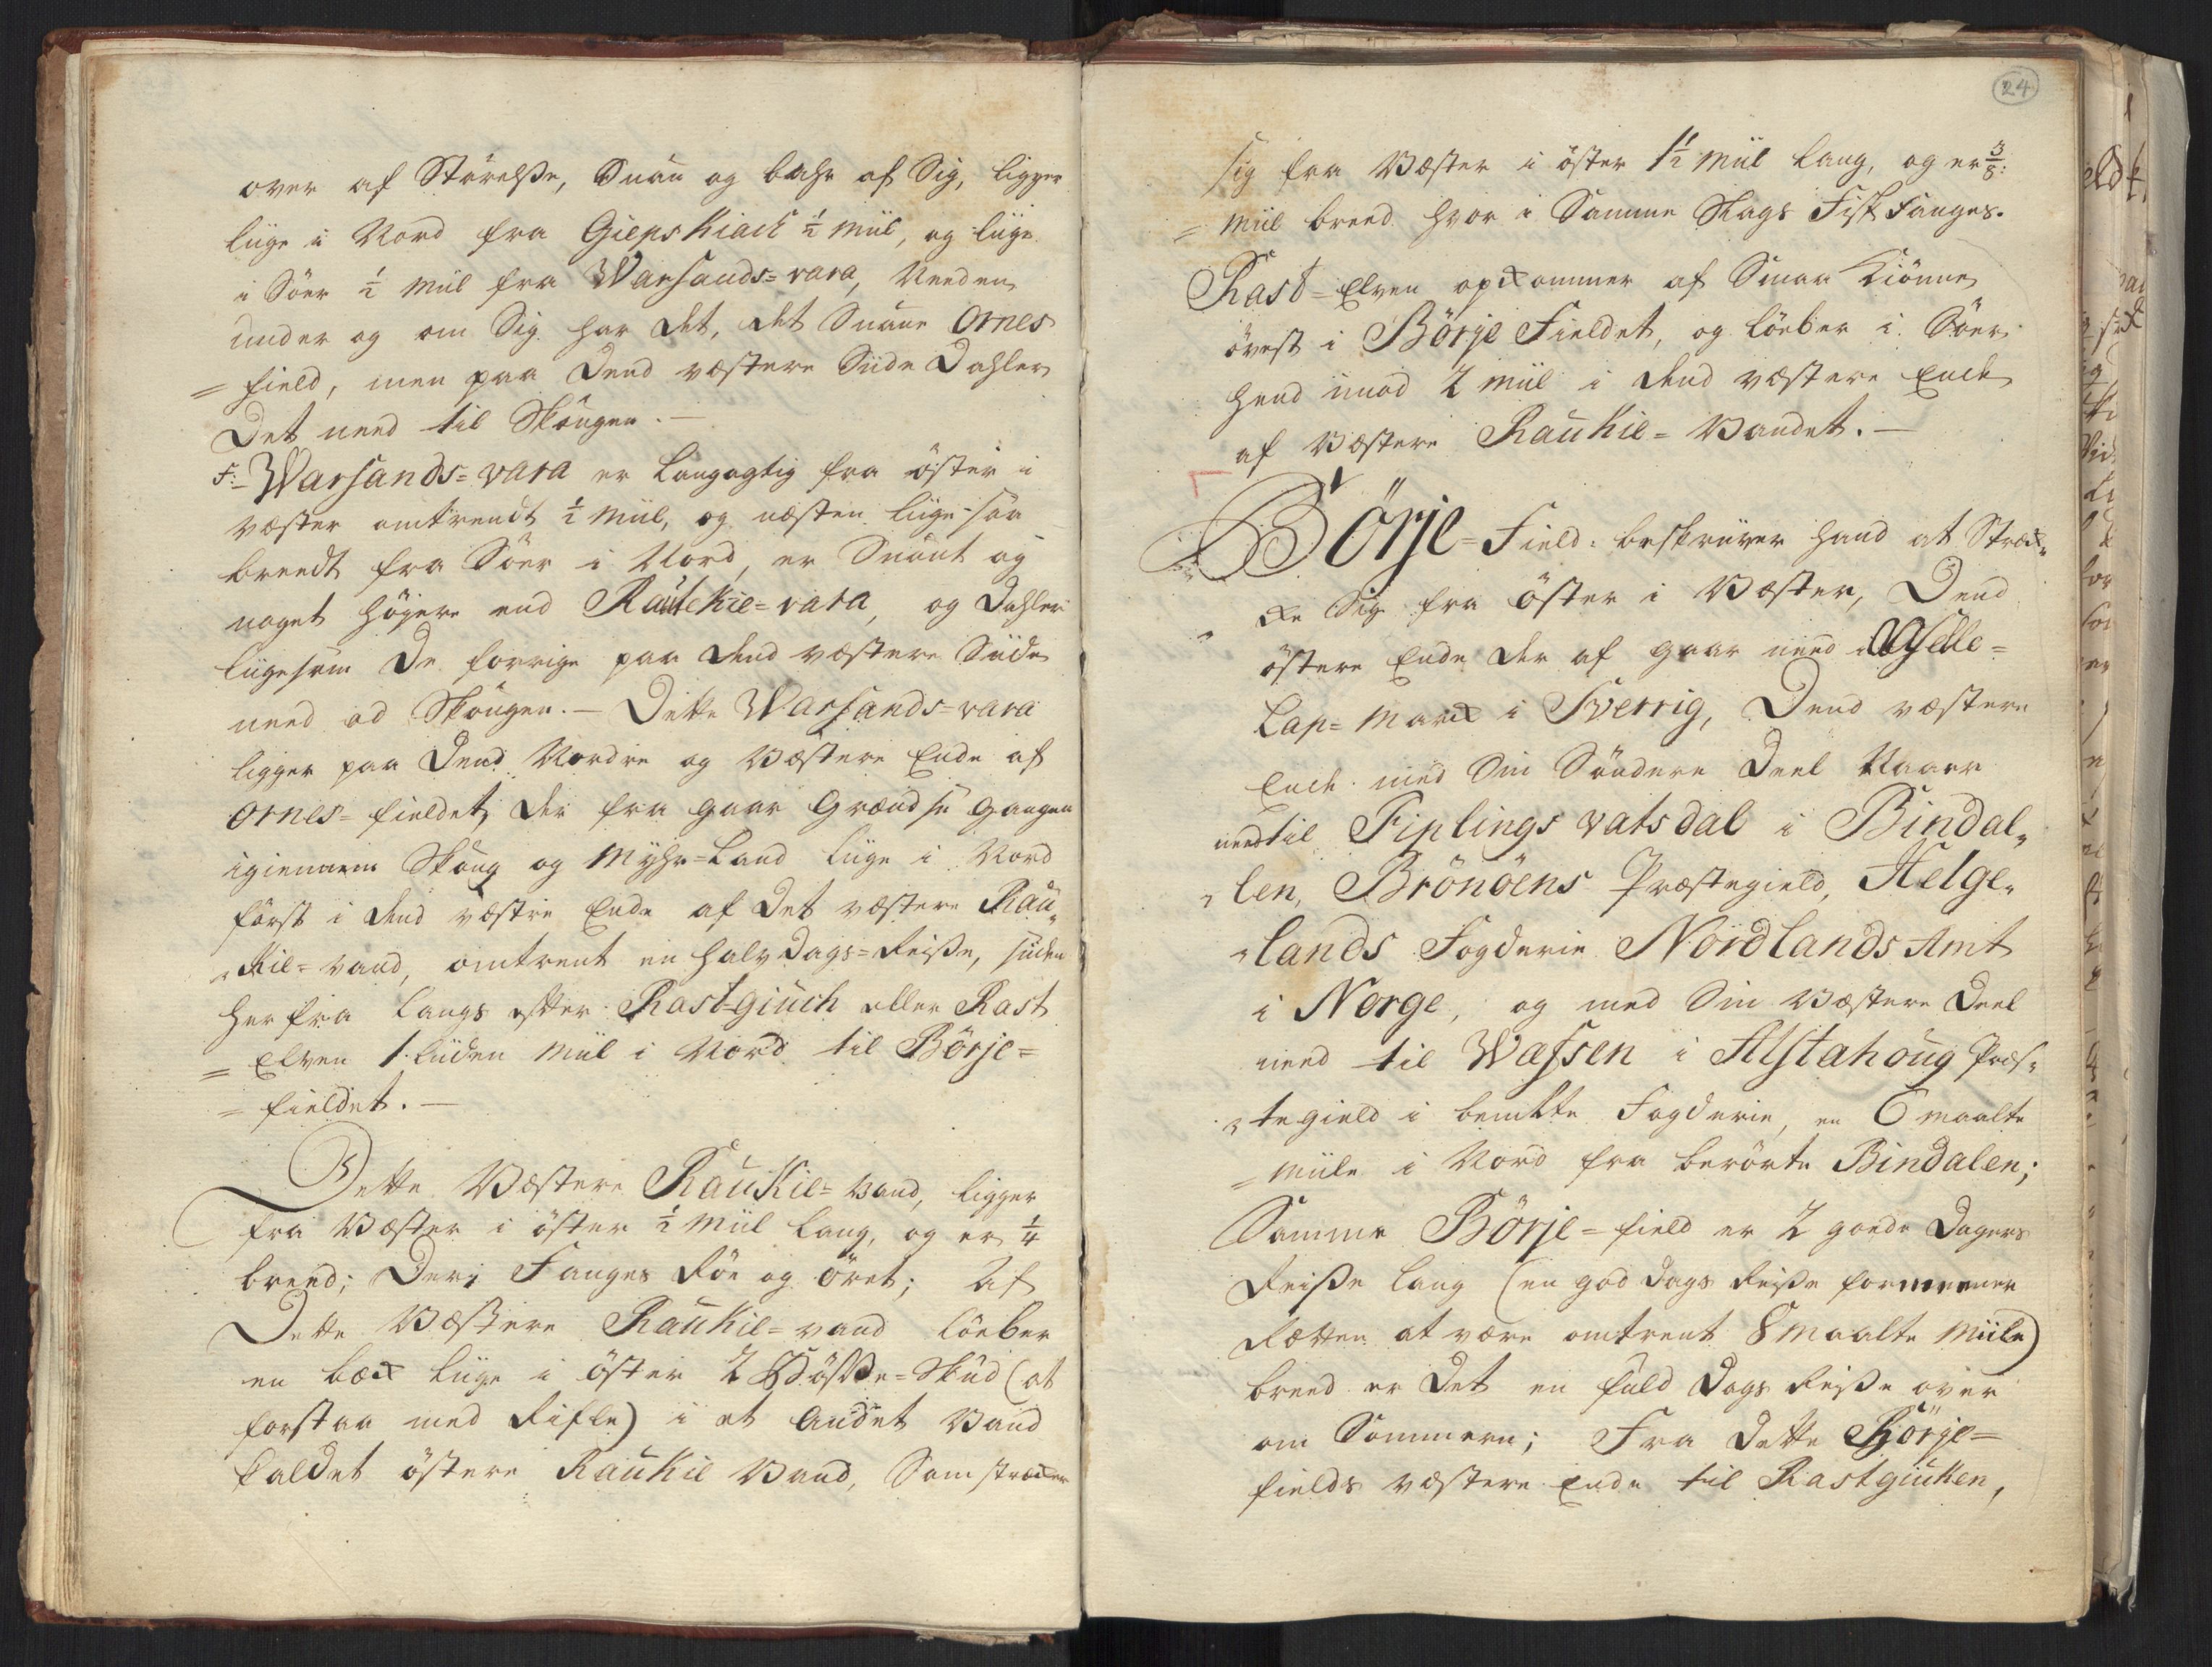 over af Störelsße, Snau og bahr af Sig, ligger
liige i Nord fra Giepskiach ½ miil, og liige
i Söer ½ miil fra Warsands=vara, Neden
under og om Sig har det, det Snaue Ornes
= field, men paa Dend væstere Siide Dahler
Det need til Skougen. —
5:- Warsands=vara er Langagtig fra öster i
væster omtrendt ½ miil, og næsten liige saa
breedt fra Söer i Nord, er Snaut og
noget höyere end Rautekie=vara, og Dahler
liigesom De forrige paa dend væstere Siide
need ad Skougen. — Dette Warsands=vara
ligger paa Dend Nordre og Væstere Ende af
Ornes=fieldet, der fra gaar Grændse gangen
igiennem Skoug og Myhr=Land liige i Nord
först i dend væstre Ende af Det væstere Rau„
„kie=vand, omtrent en halv Dags=Reiße, siiden
her fra langs efter Rast=giuch eller Rast
= Elven 1. liiden miil i Nord til Börje=
= fieldet. —
Dette Væstere Raukie=vand, ligger
fra Væster i öster ½ miil lang, og er ¼
breed; Deri Fanges Röe og öret; Af
Dette Væstere Raukie=vand löeber
en bæck liige i öster 2 Bösße=Skud (at
forstaa med Rifle) i et andet Vand
kaldet östere Raukie Vand, Som strecker
24
sig fra Væster i öster 1½ miil lang, og er 3/8:
= miil breed hvor i Samme Slags Fisk Fanges.
Rast=Elven opkommer af Smaa Kiönne
överst i Börje Fieldet, og löeber i Söer
hend imod 2 miil i dend væstere Ende
af Væstere Raukie=Vandet. —
Börje=Field: beskriver hand at Stræck„
„ke Sig fra öster i Væster, Dend
östere Ende der af gaar need i Aselle=
Lap=Marck i Sverrig, Dend væstere
Ende med Sin Söndere Deel Naaer
need til Fiplingsvatsdal i Bindal„
„len, Brönöens Præstegield, Helge„
„lands Fogderie Nordlands Amt
i Norge, og med Sin Væstere Deel
need til Wefsen i Alstahoug Præs„
„tegield i bemelte Fogderie, en 6 maalte
= miile i Nord fra berörte Bindalen;
Samme Börje=field er 2 goede Dagers
Reiße lang (en god Dags Reiße formeener
Retten at være omtrent 8 maalte miile)
breed er Det en fuld Dags Reiße over
om Sommeren; Fra Dette Börje=
fields væstere Ende til Rastgiuken,